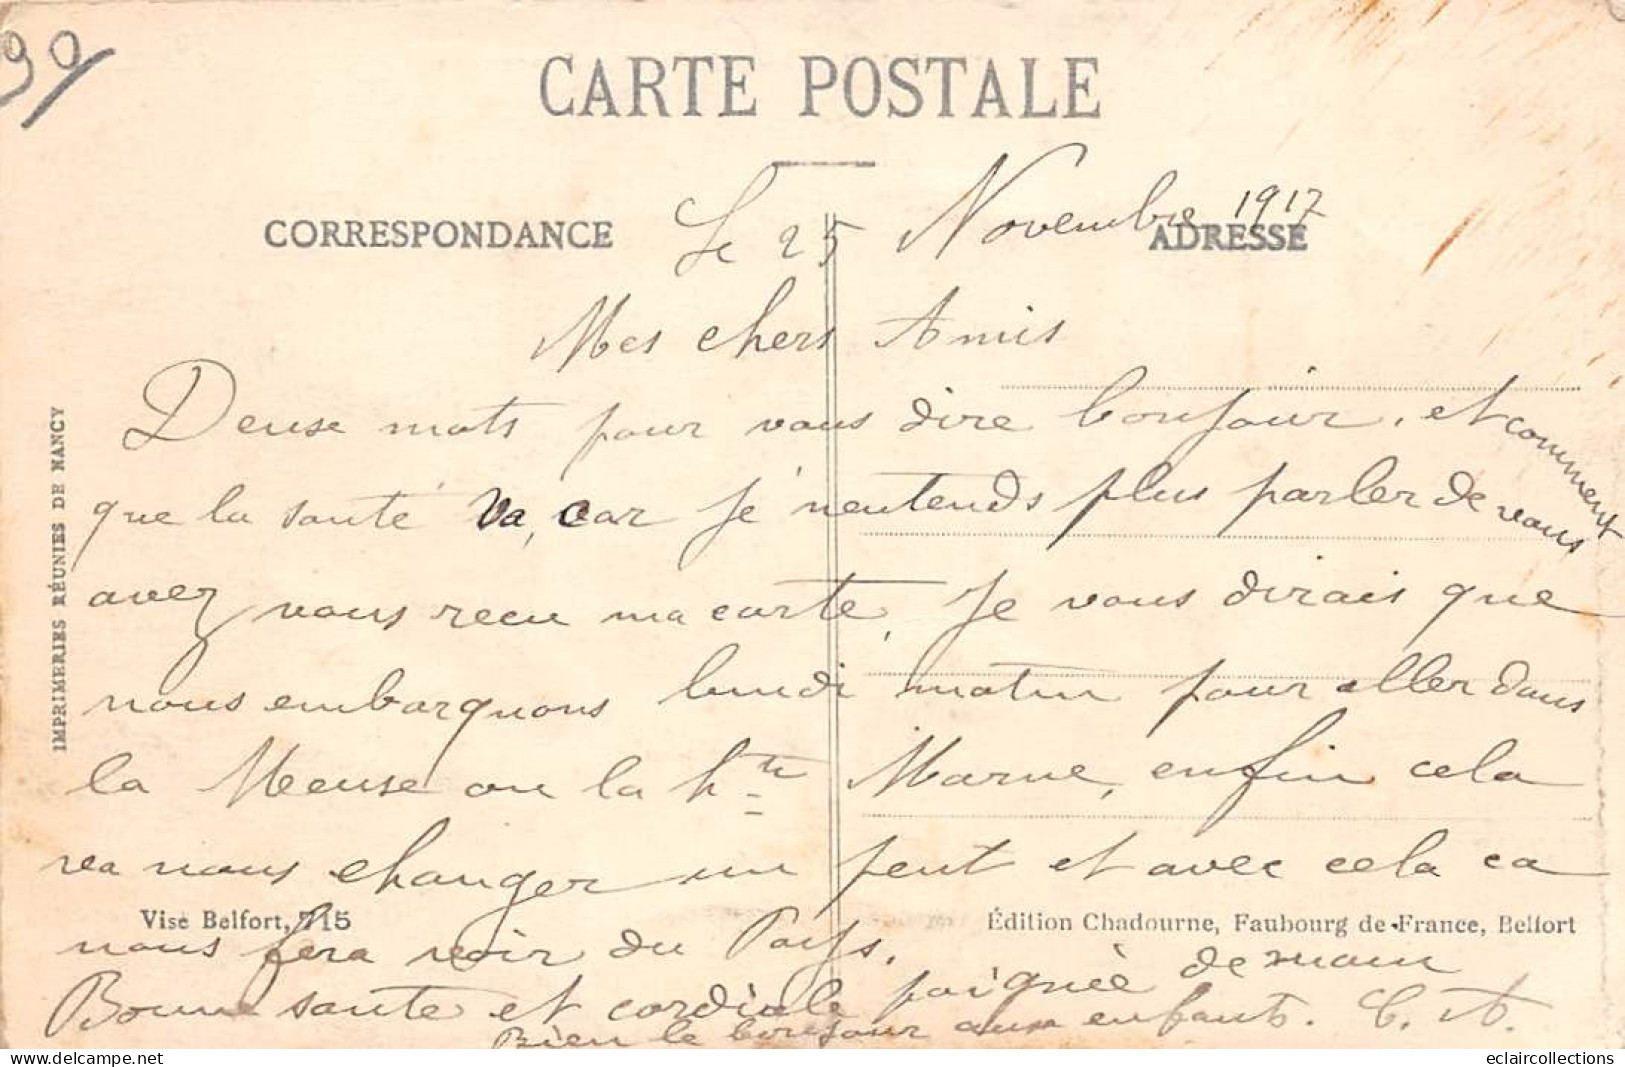 90
CARTE POSTALE
CORRESPONDANCE
ADRESSE
Le 25 Novembre 1917
Mes chers Amis
Deuse mots pour vous dire bonjour, et comment
que la santé va, car je n'entends plus parler de vous
avez vous recu ma carte, Je vous dirais que
nous embarquons lundi matin pour aller dans
la Meuse ou la hte Marne, enfin cela
va nous changer un peut et avec cela ca
nous fera voir du Pays.
Bonne sante et cordiale poignée de main
Bien le bonjour aux enfants. C. A.
IMPRIMERIES RÉUNIES DE NANCY
Visé Belfort, 715
Édition Chadourne, Faubourg de France, Belfort
eclaircollections